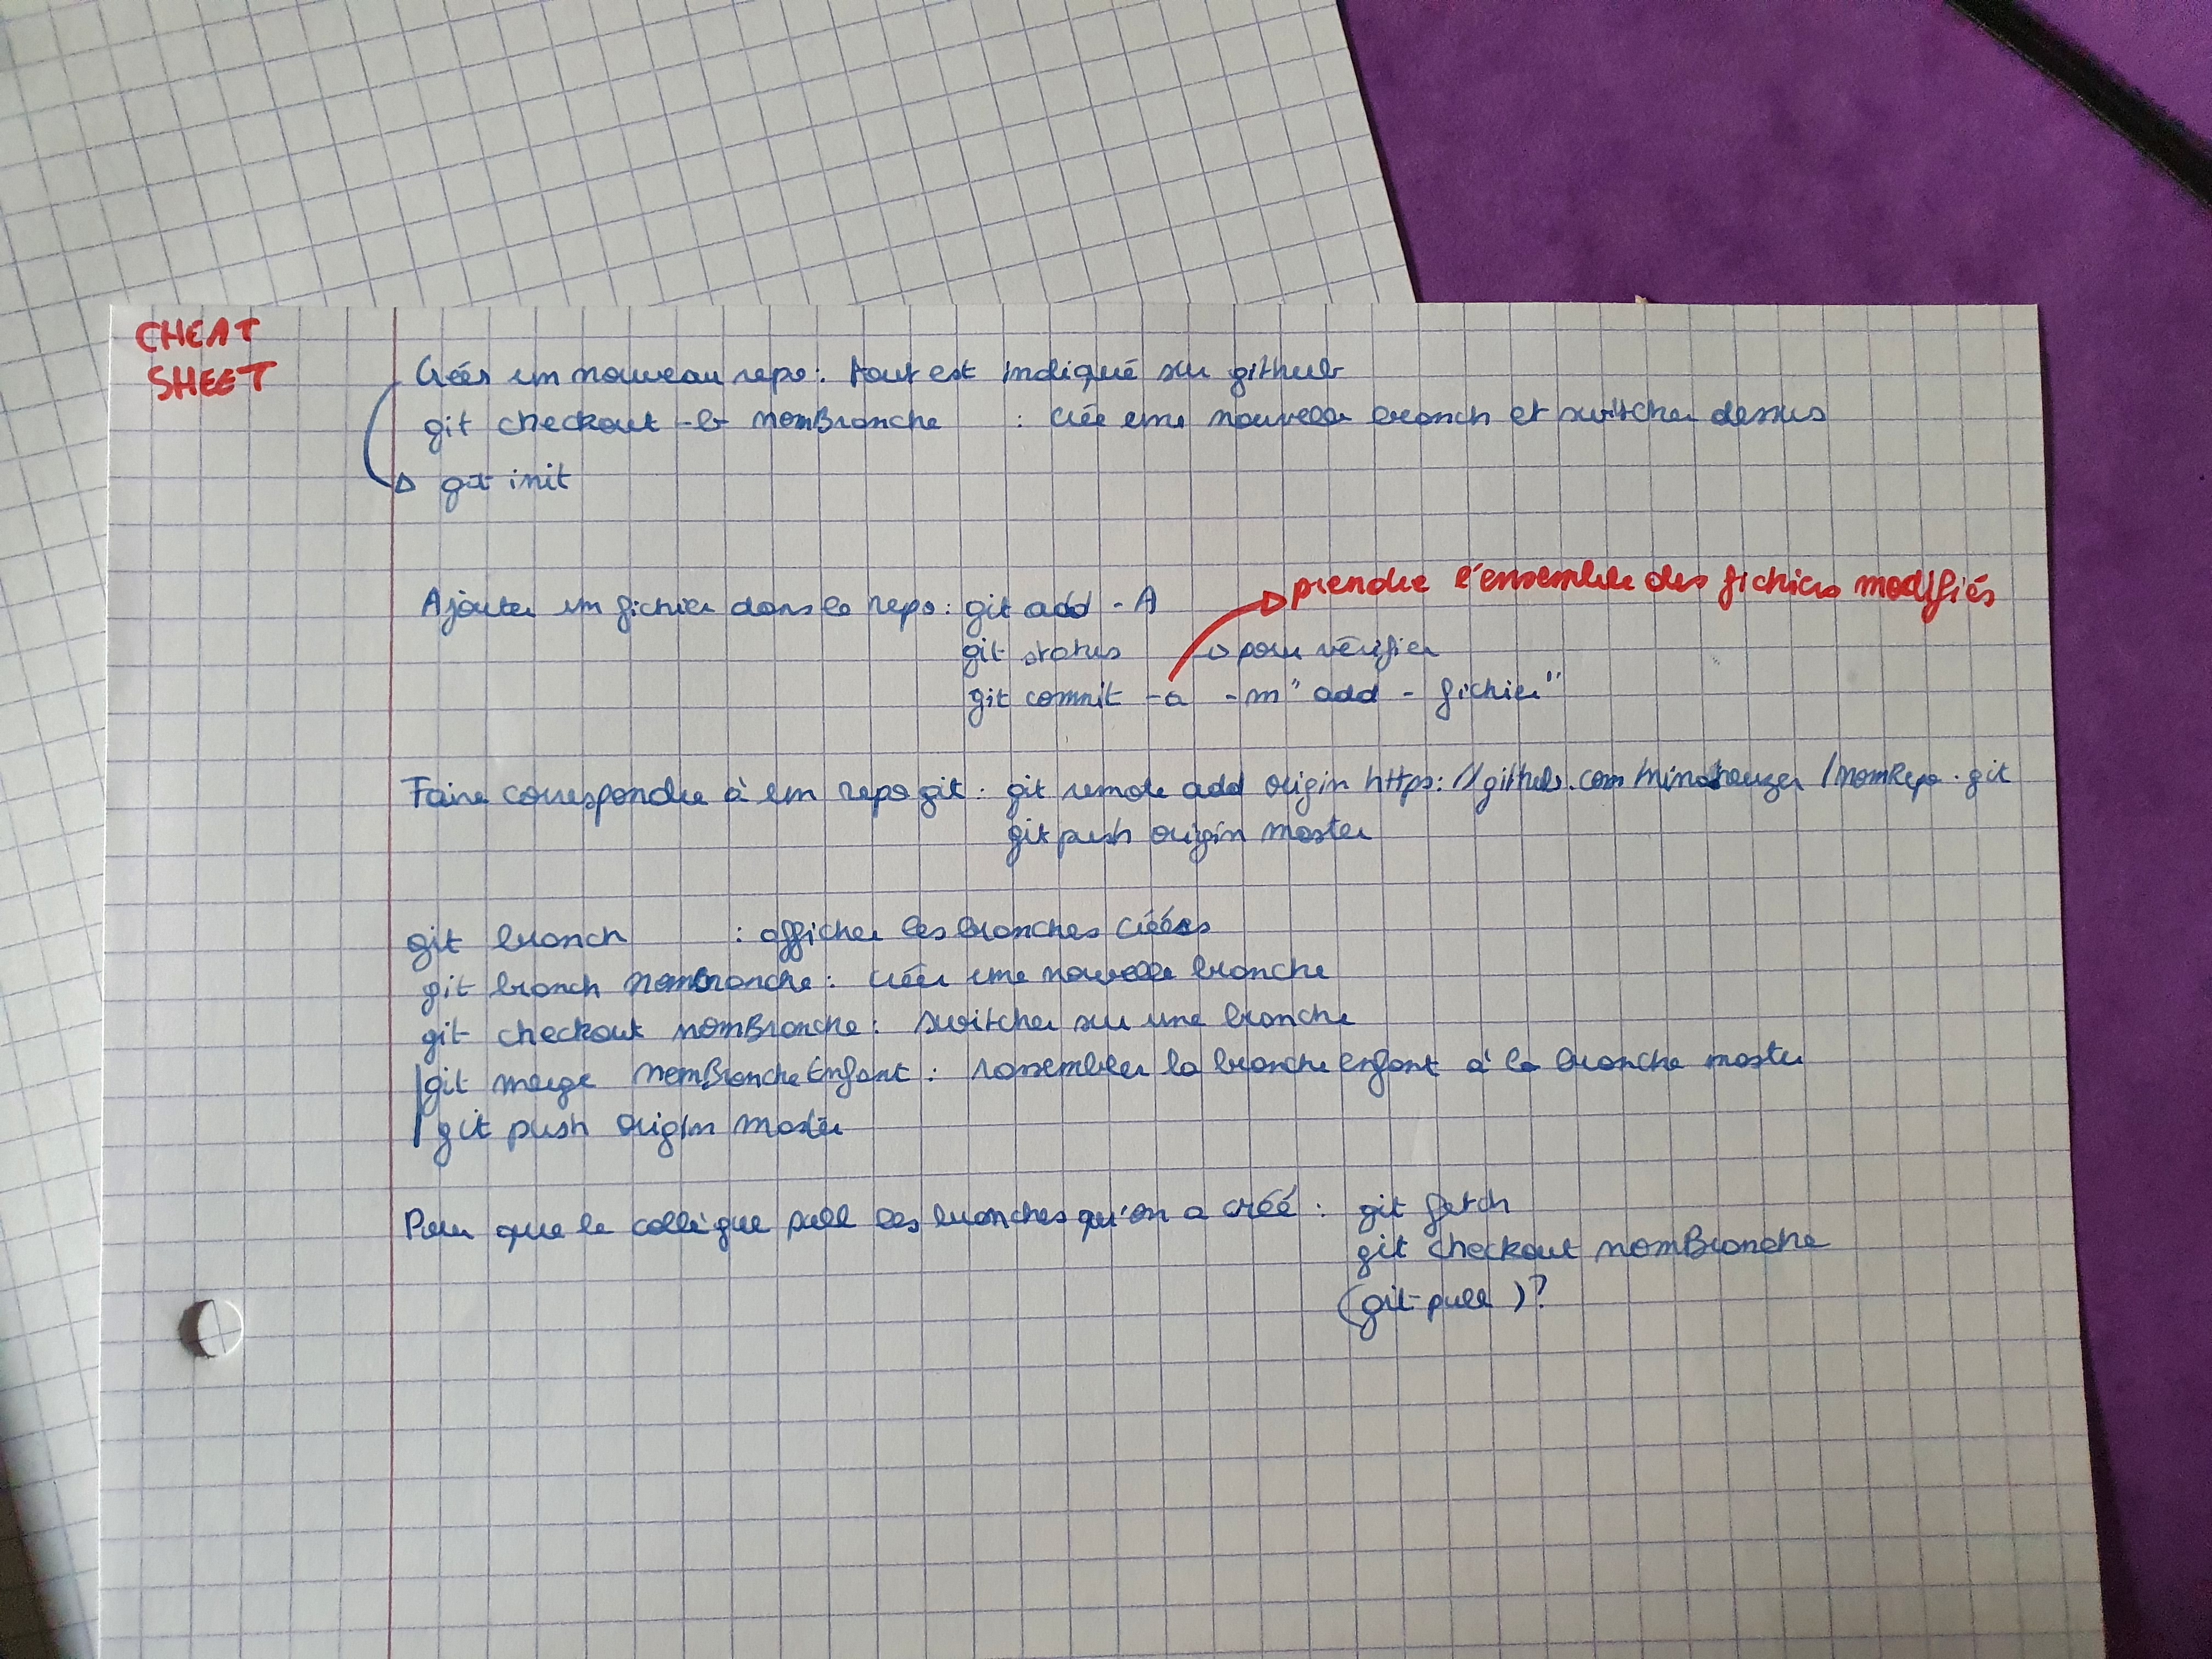 CHEAT
SHEET
Créer un nouveau repo : tout est indiqué sur github
git checkout -b nomBranche : crée une nouvelle branch et switcher dessus
git init
Ajouter un fichier dans le repo : git add -A
prendre l'ensemble des fichiers modifiés
git status → pour vérifier
git commit -a -m "add - fichier"
Faire correspondre à un repo git : git remote add origin https://github.com/
/nomRepo.git
git push origin master
git branch : afficher les branches créées
git branch nomBranche : créer une nouvelle branche
git checkout nomBranche : switcher sur une branche
git merge nomBrancheEnfant : rassembler la branche enfant à la branche master
git push origin master
Pour que le collègue pull les branches qu'on a créé : git fetch
git checkout nomBranche
(git pull)?